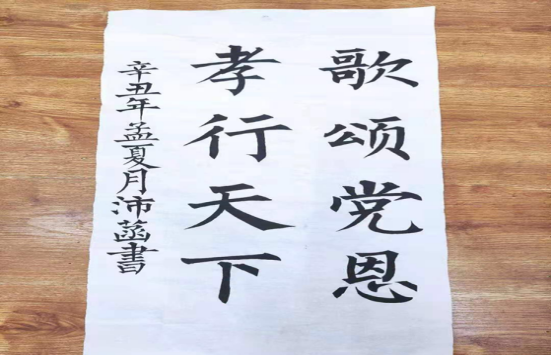 歌颂党恩
孝行天下
辛丑年孟夏月沛菡書